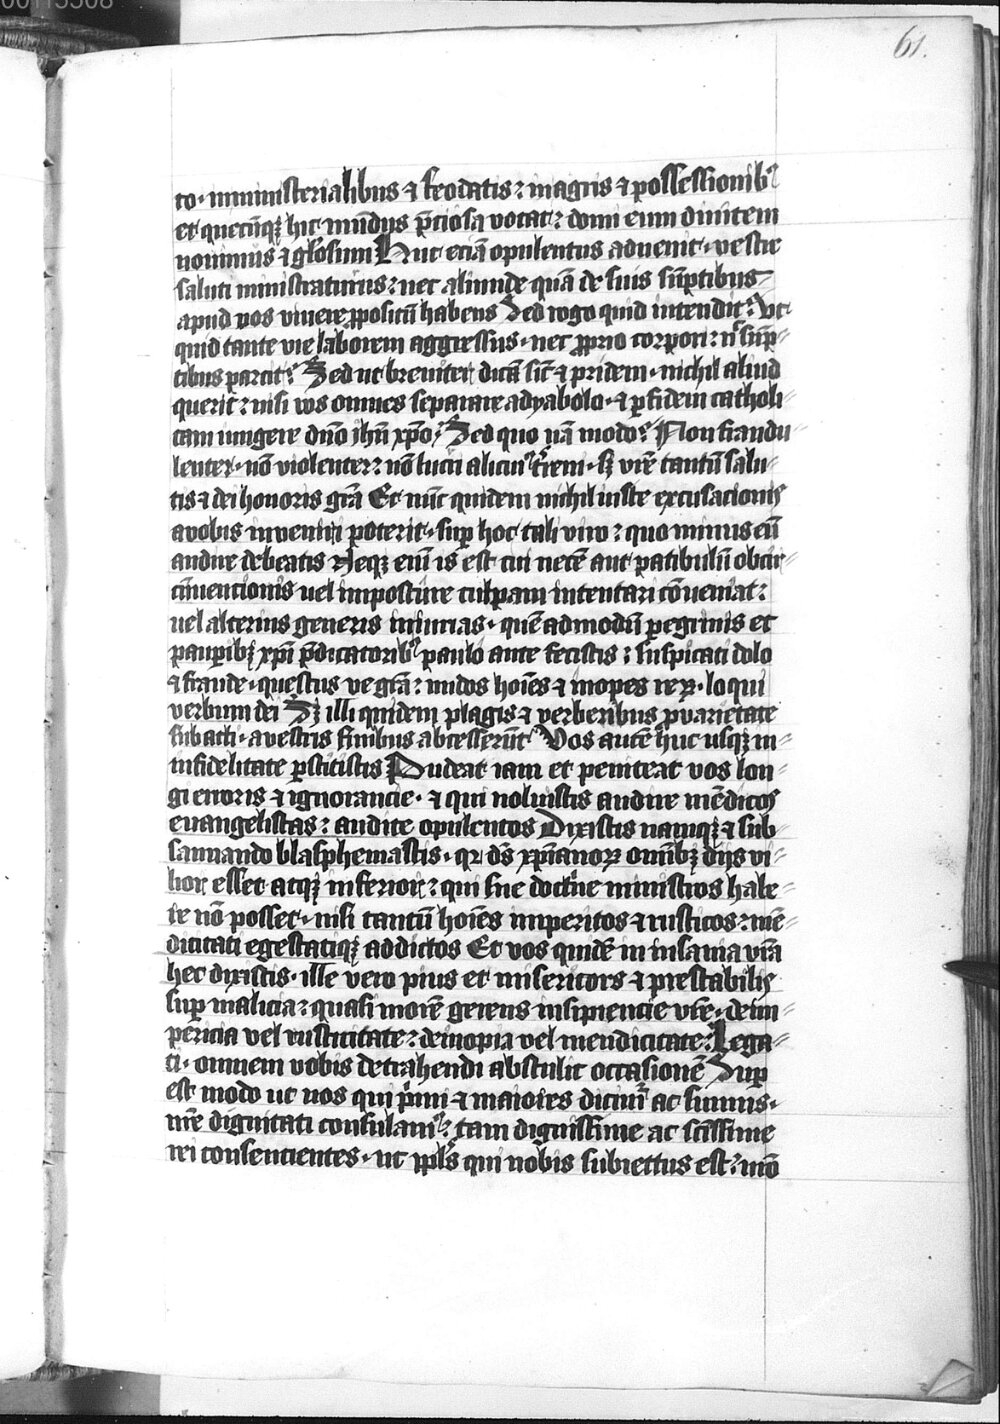 00115508
61.
to. ministerialibus ⁊ feodatis: magnis ⁊ possessionibꝰ
et quecūqꝫ hic mūdus p̄ciosa vocat: domi eum diuitem
nouimus ⁊ gl̄osum Huc eciā opulentus aduenit. vestre
saluti ministraturus: nec aliunde quā de suis sūptibus
apud vos viuere ꝓpositū habens Sed rogo quid intendit? Ut
quid tante vie laborem aggressus. nec ꝓprio corpori: nͨ sūp⸗
tibus parcit? Sed ut breuiter dicā sic̄ ⁊ pridem. nichil aliud
querit: nisi vos omnes separare a dyabolo. ⁊ ꝑ fidem catholi⸗
cam iungere dn̄o ihū xp̄o. Sed quo nā modo? Non fraudu⸗
lenter. nō violenter: nō lucri alicuiꝰ t̄rem. sꝫ vr̄e tantū salu⸗
tis ⁊ dei honoris gr̄a Et nūc quidem nichil iuste excusacionis
a vobis inveniri poterit. suꝑ hoc tali viro: quo minus eū
audire debeatis Neqꝫ eni̅ is est cui necē aut patibulū ob cir⸗
cūuencionis uel imposture culpam intentari cōueniat:
uel alterius generis iniurias. quēadmodū ꝑegrinis et
pauꝑibꝫ xp̄i p̄dicatoribꝰ paulo ante fecistis: suspicati dolo
⁊ fraude. questus ve gr̄a: nudos hoīes ⁊ inopes reꝝ. loqui
verbum dei Sꝫ illi quidem plagis ⁊ verberibus ꝓ varietate
subacti. a vestris finibus abcesserūt Vos autē huc usqꝫ in⸗
infidelitate ꝑstitistis Pudeat iam et peniteat vos lon⸗
gi erroris ⁊ ignorancie. ⁊ qui noluistis audire mēdicos
euangelistas: audite opulentos Dixistis namqꝫ ⁊ sub⸗
sannando blasphemastis. qꝛ dꝰ xp̄ianoꝝ omībꝫ dijs vi⸗
lior esset atqꝫ inferior: qui sue doctͥne ministros habe⸗
re nō posset. nisi tantū hoīes imperitos ⁊ rusticos: mē⸗
dicitati egestatiqꝫ addictos Et vos quidē in insania vr̄a
hec dixistis. ille vero pius et misericors ⁊ prestabilis
suꝑ malicia: quasi morē gerens insipiencie vr̄e. de im⸗
pericia vel rusticitate: de inopia vel mendicitate: Lega⸗
ti. omnem vobis detrahendi abstulit occasionē Suꝑ
est modo ut vos qui pͥmi ⁊ maiores dicimͬ ac sumus.
nr̄e dignitati consulamꝰ: tam dignissime ac scīssime
rei consencientes. ut ppl̄s qui nobis subiectus est: mō